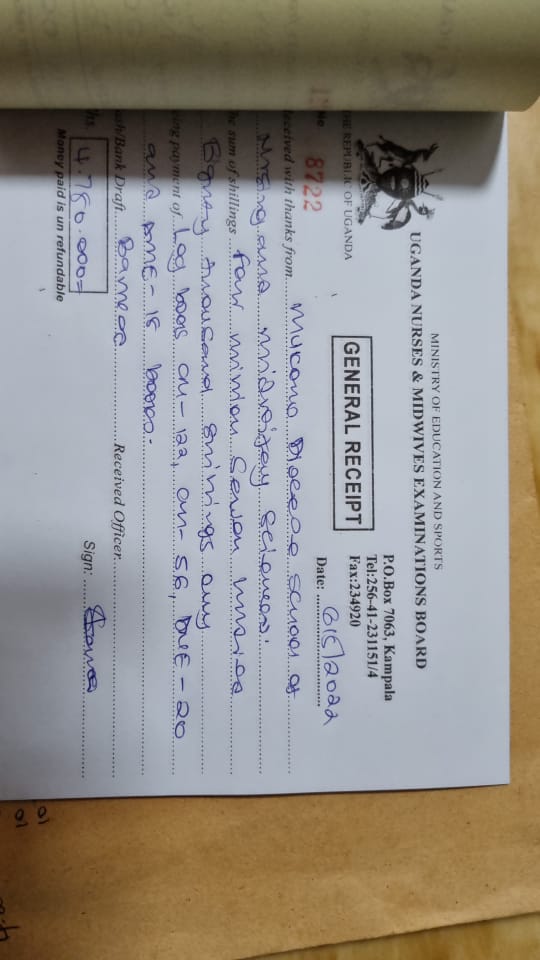 MINISTRY OF EDUCATION AND SPORTS
UGANDA NURSES & MIDWIVES EXAMINATIONS BOARD
THE REPUBLIC OF UGANDA
P.O.Box 7063, Kampala
Tel:256-41-231151/4
Fax:234920
GENERAL RECEIPT
No 8722
Date: 6/5/2022
Received with thanks from Mukono Diocese School of
Nursing and Midwifery Sciences.
The sum of shillings four million Seven hundred
Eighty thousand shillings only
being payment of Log books CN-122, CM-56, DNE-20
and DME-18 books.
Cash/Bank Draft Received Officer.
Shs. 4.780.000= Sign:
Money paid is un refundable